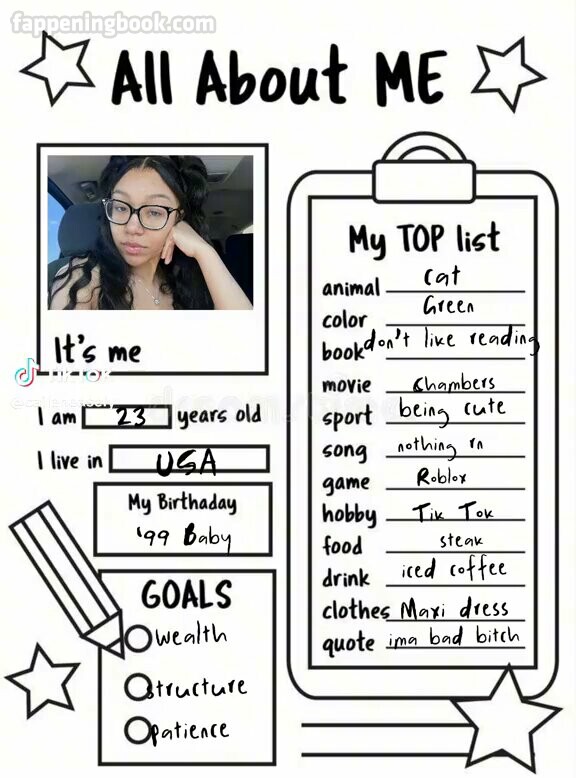 fappeningbook.com
All About ME
It's me
TikTok
I am 23 years old
I live in USA
My Birthaday
'99 Baby
GOALS
wealth
structure
patience
My TOP list
animal cat
color Green
book don't like reading
movie Chambers
sport being cute
song nothing rn
game Roblox
hobby Tik Tok
food steak
drink iced coffee
clothes Maxi dress
quote ima bad bitch